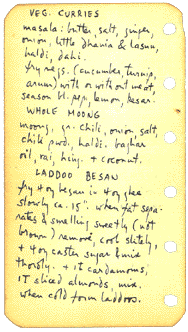 VEG. CURRIES
masala: butter, salt, ginger,
onion, little dhania & lasun,
haldi, dahi.
fry vegs. (cucumber, turnip,
arum) with or without meat,
season bl. pep, lemon, kesar.
WHOLE MOONG
moong, gr. chili, onion, salt,
chili pwd., haldi. baghar
oil, rai, hing. + coconut.
LADDOO BESAN
fry 4 oz besan in 4 oz ghee
slowly ca. 15". when fat sepa-
rates & smelling sweetly (not
brown) remove, cool slitely,
+ 4 oz caster sugar & mix
thoroly. + 1t cardamoms,
1T sliced almonds, mix.
when cold form laddoos.